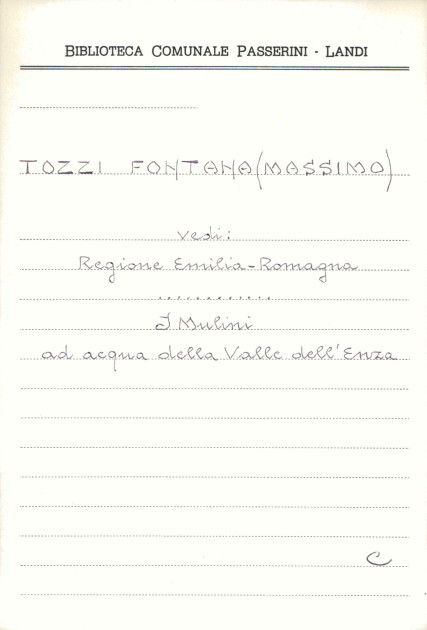 BIBLIOTECA COMUNALE PASSERINI - LANDI
TOZZI FONTANA (MASSIMO)
vedi:
Regione Emilia-Romagna
............
I Mulini
ad acqua della Valle dell'Enza
C